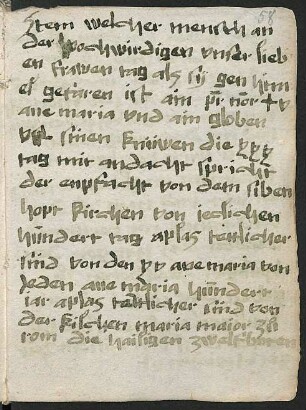 58
Item welcher mensch an
der hochwirdigen vnser lieb
en frawen tag als sy gen him
el gefaren ist ain pr nor + v
aue maria vnd ain globen
vff sinen knüwen die xxx
tag mit andacht spricht
der enpfacht von dem siben
hopt kirchen von ieclichen
hundert tag aplas tettlicher
sünd von den xv aue maria von
Jeden aue maria hundert
iar aplas tettlicher sünd von
der kilchen maria maior zu
rom die hailigen zwelf boten